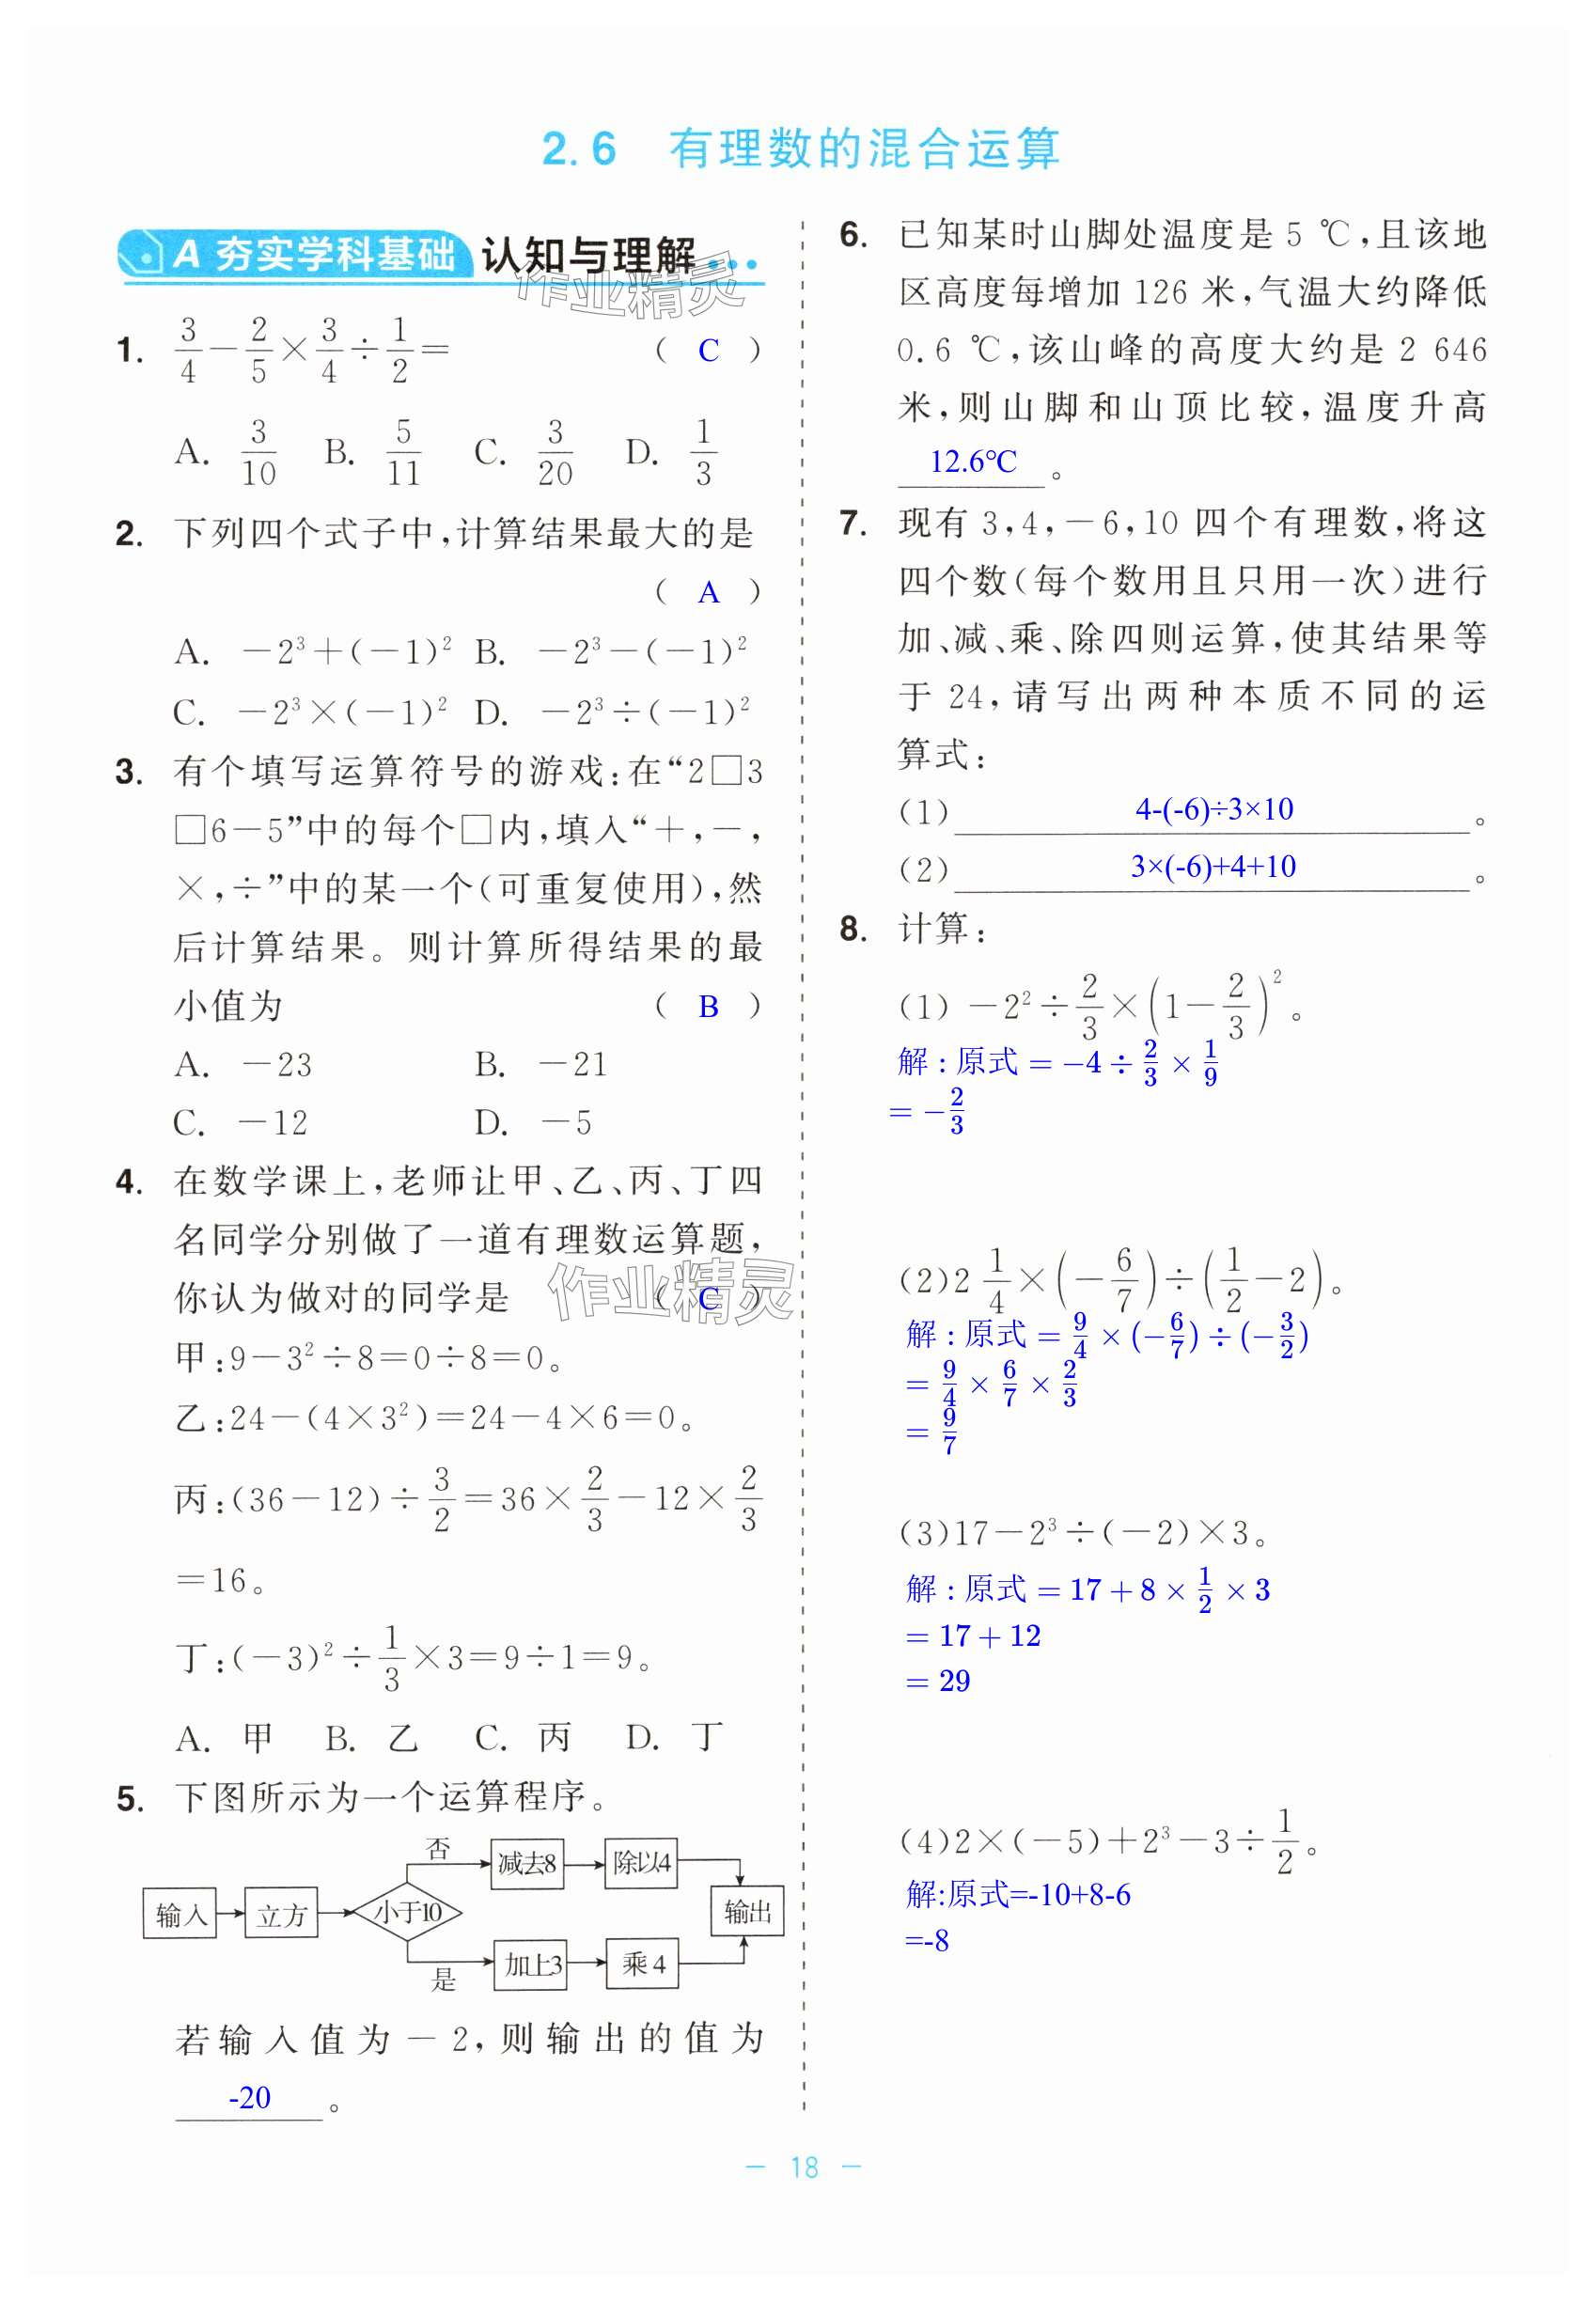 2.6 有理数的混合运算
A 夯实学科基础 认知与理解
作业精灵
1. 3/4－2/5×3/4÷1/2＝ （ C ）
A. 3/10 B. 5/11 C. 3/20 D. 1/3
2. 下列四个式子中,计算结果最大的是
（ A ）
A. －2³＋(－1)² B. －2³－(－1)²
C. －2³×(－1)² D. －2³÷(－1)²
3. 有个填写运算符号的游戏:在“2□3
□6－5”中的每个□内,填入“＋,－,
×,÷”中的某一个(可重复使用),然
后计算结果。则计算所得结果的最
小值为 （ B ）
A. －23 B. －21
C. －12 D. －5
4. 在数学课上,老师让甲、乙、丙、丁四
名同学分别做了一道有理数运算题,
你认为做对的同学是 （ C ）
作业精灵
甲:9－3²÷8＝0÷8＝0。
乙:24－(4×3²)＝24－4×6＝0。
丙:(36－12)÷3/2＝36×2/3－12×2/3
＝16。
丁:(－3)²÷1/3×3＝9÷1＝9。
A. 甲 B. 乙 C. 丙 D. 丁
5. 下图所示为一个运算程序。
否 减去8 除以4
输入 立方 小于10 输出
是 加上3 乘4
若输入值为－2,则输出的值为
-20 。
6. 已知某时山脚处温度是 5 ℃,且该地
区高度每增加 126 米,气温大约降低
0.6 ℃,该山峰的高度大约是 2 646
米,则山脚和山顶比较,温度升高
12.6℃ 。
7. 现有 3,4,－6,10 四个有理数,将这
四个数(每个数用且只用一次)进行
加、减、乘、除四则运算,使其结果等
于 24,请写出两种本质不同的运
算式:
(1) 4-(-6)÷3×10 。
(2) 3×(-6)+4+10 。
8. 计算:
(1) －2²÷2/3×(1－2/3)²。
解：原式 = −4 ÷ 2/3 × 1/9
= −2/3
(2)2 1/4×(－6/7)÷(1/2－2)。
解：原式 = 9/4 × (−6/7) ÷ (−3/2)
= 9/4 × 6/7 × 2/3
= 9/7
(3)17－2³÷(－2)×3。
解：原式 = 17 + 8 × 1/2 × 3
= 17 + 12
= 29
(4)2×(－5)＋2³－3÷1/2。
解:原式=-10+8-6
=-8
－ 18 －